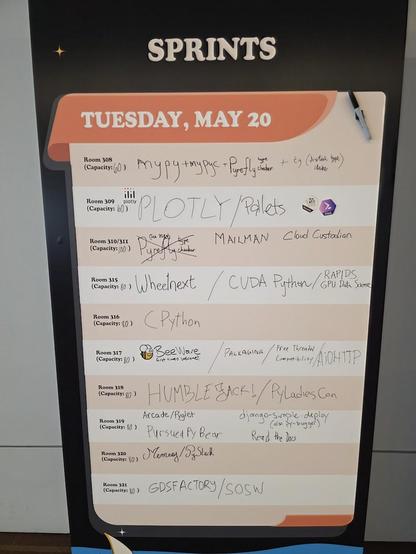 SPRINTS
TUESDAY, MAY 20
Room 308
(Capacity: 60)
mypy + mypyc + Pyrefly type checker + ty (distinct type) checker
Room 309
(Capacity: 60)
plotly
PLOTLY / Pallets
Room 310/311
(Capacity: )
Pyrefly type checker
MAILMAN Cloud Custodian
Room 315
(Capacity: 80)
Wheelnext / CUDA Python / RAPIDS
GPU Data Science
Room 316
(Capacity: 80)
CPython
Room 317
(Capacity: 80)
BeeWare / PACKAGING / Free Threaded Compatibility / AIOHTTP
Room 318
(Capacity: 80)
HUMBLE JACK! / PyLadiesCon
Room 319
(Capacity: 80)
Arcade/Pyglet django-simple-deploy
PursuedPyBear Read the Docs
Room 320
(Capacity: 80)
Memray / PyStack
Room 321
(Capacity: 80)
GDSFACTORY / SOSW